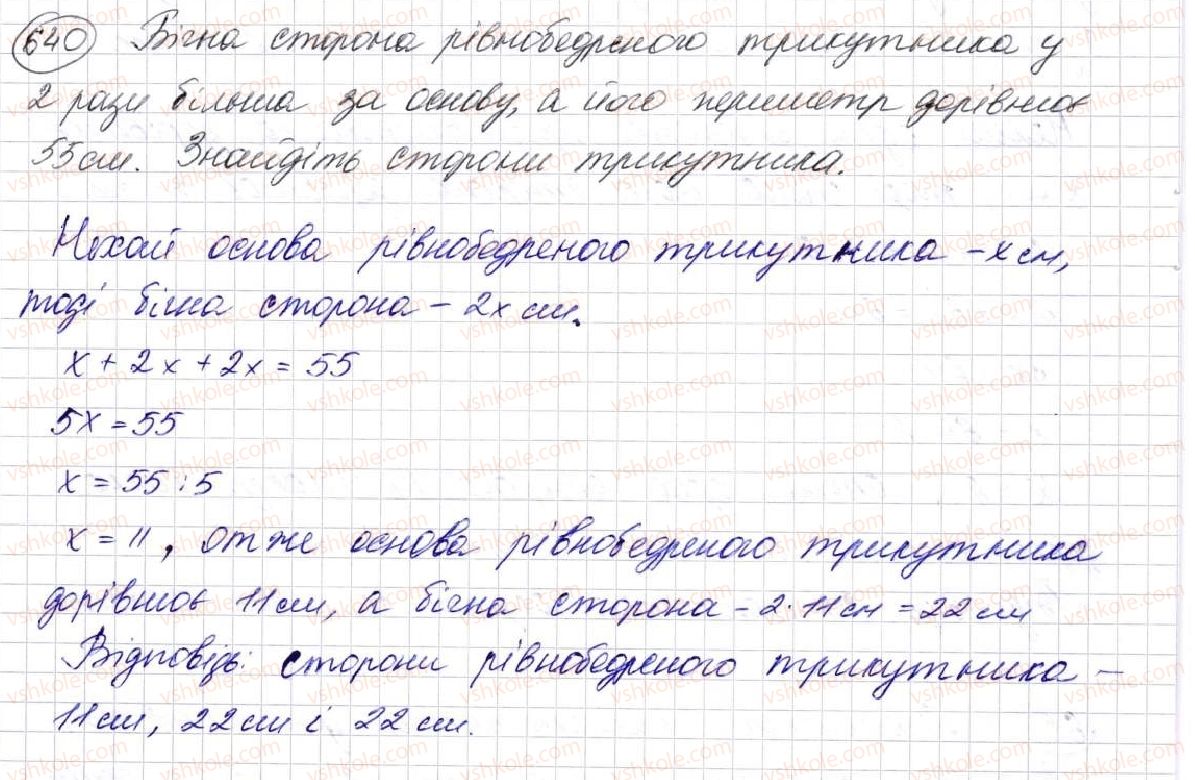 640 Бічна сторона рівнобедреного трикутника у
2 рази більша за основу, а його периметр дорівнює
55 см. Знайдіть сторони трикутника.
Нехай основа рівнобедреного трикутника – x см,
тоді бічна сторона – 2x см.
x + 2x + 2x = 55
5x = 55
x = 55 : 5
x = 11, отже основа рівнобедреного трикутника
дорівнює 11 см, а бічна сторона – 2 · 11 см = 22 см
Відповідь: сторони рівнобедреного трикутника –
11 см, 22 см і 22 см.